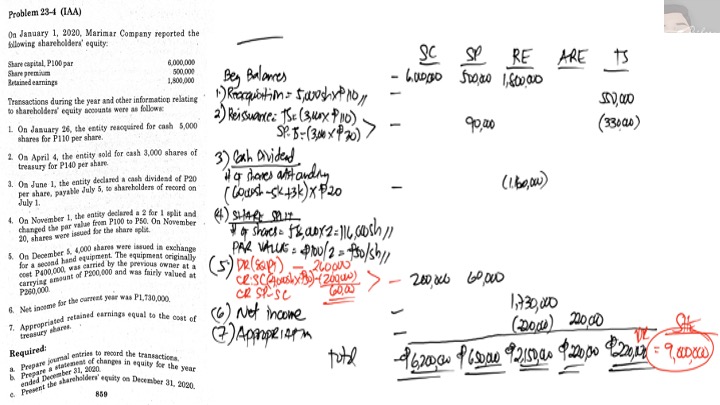 Problem 23-4 (IAA)
On January 1, 2020, Marimar Company reported the
following shareholders' equity:
Share capital, P100 par 6,000,000
Share premium 500,000
Retained earnings 1,500,000
Transactions during the year and other information relating
to shareholders' equity accounts were as follows:
1. On January 26, the entity reacquired for cash 5,000
shares for P110 per share.
2. On April 4, the entity sold for cash 3,000 shares of
treasury for P140 per share.
3. On June 1, the entity declared a cash dividend of P20
per share, payable July 5, to shareholders of record on
July 1.
4. On November 1, the entity declared a 2 for 1 split and
changed the par value from P100 to P50. On November
20, shares were issued for the split.
5. On December 5, 4,000 shares were issued in exchange
for a second hand equipment. The equipment originally
cost P400,000, was carried by the previous owner at a
carrying amount of P200,000 and was fairly valued at
P260,000.
6. Net income for the current year was P1,730,000.
7. Appropriated retained earnings equal to the cost of
treasury shares.
Required:
a. Prepare journal entries to record the transactions.
b. Prepare a statement of changes in equity for the year
ended December 31, 2020.
c. Present the shareholders' equity on December 31, 2020.
859
SC SP RE ARE TS
Beg Balances - 6,000,000 500,000
1) Reacquisition = 5,000sh x ₱110 // - 550,000
2) Reissuance: TS = (3,000 x ₱110)
SP-TS = (3,000 x ₱30) > - 90,000 (330,000)
3) Cash Dividend
# of shares outstanding
(60,000sh - 5k + 3k) x ₱20 - (1,160,000)
(4) SHARE SPLIT
# of shares = 58,000 x 2 = 116,000sh //
PAR VALUE = ₱100/2 = ₱50/sh //
(5) DR (Eqpt) - 260,000
CR: SC (4,000sh x 50) - (200,000) > - 200,000 60,000
CR SP-SC 60,000
(6) Net income - 1,730,000
(7) Appropriation - (220,000) 220,000
total - ₱6,200,000 ₱650,000 ₱2,150,000 ₱220,000 ₱220,000 = 9,000,000
SHE